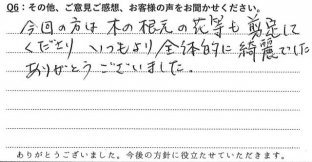 Q6:その他、ご意見ご感想、お客様の声をお聞かせください。
今回の方は木の根元の花等も剪定して
くださり いつもより全体的に綺麗でした
ありがとうございました。
ありがとうございました。今後の方針に役立たせていただきます。